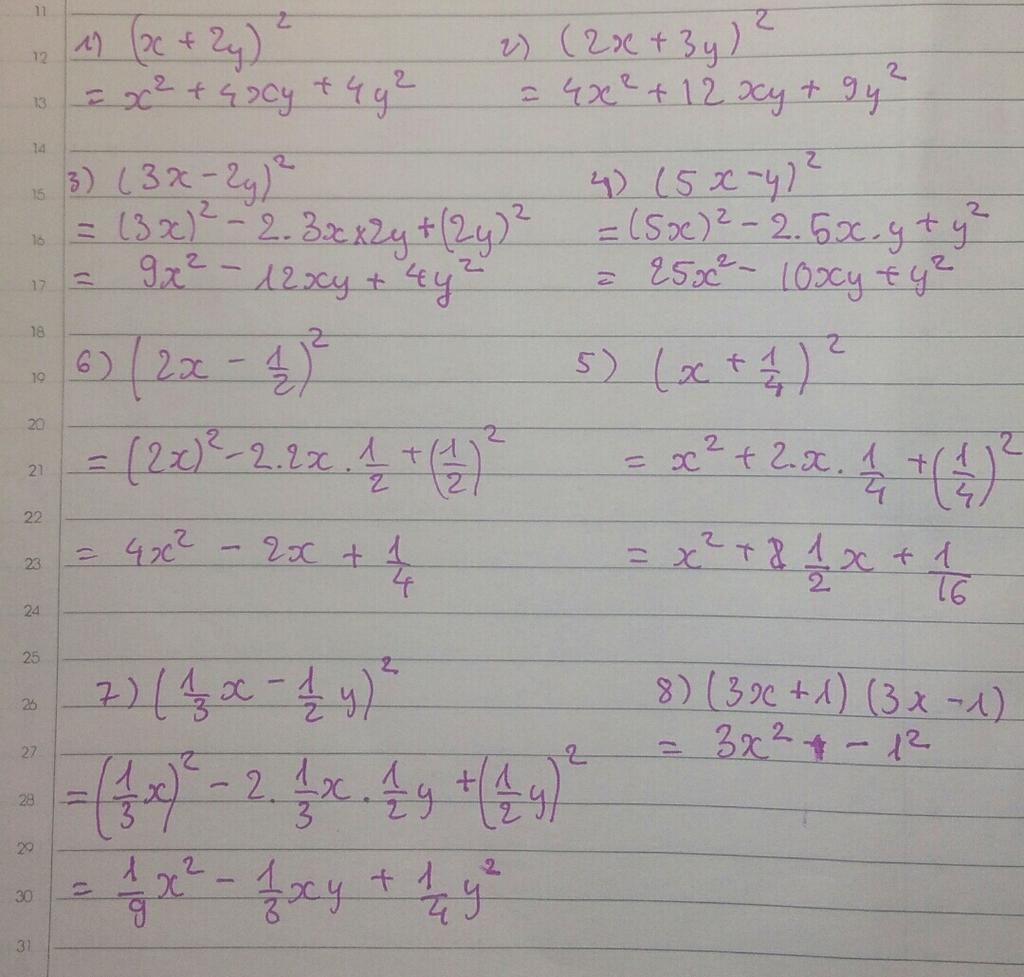 11
12
13
14
15
16
17
18
19
20
21
22
23
24
25
26
27
28
29
30
31
1) (x + 2y)²
= x² + 4xy + 4y²
2) (2x + 3y)²
= 4x² + 12xy + 9y²
3) (3x - 2y)²
= (3x)² - 2.3x×2y + (2y)²
= 9x² - 12xy + 4y²
4) (5x - y)²
= (5x)² - 2.5x.y + y²
= 25x² - 10xy + y²
6) (2x - 1/2)²
= (2x)² - 2.2x.1/2 + (1/2)²
= 4x² - 2x + 1/4
5) (x + 1/4)²
= x² + 2.x.1/4 + (1/4)²
= x² + 1/2 x + 1/16
7) (1/3 x - 1/2 y)²
= (1/3 x)² - 2.1/3 x.1/2 y + (1/2 y)²
= 1/9 x² - 1/3 xy + 1/4 y²
8) (3x + 1) (3x - 1)
= 3x² - 1²